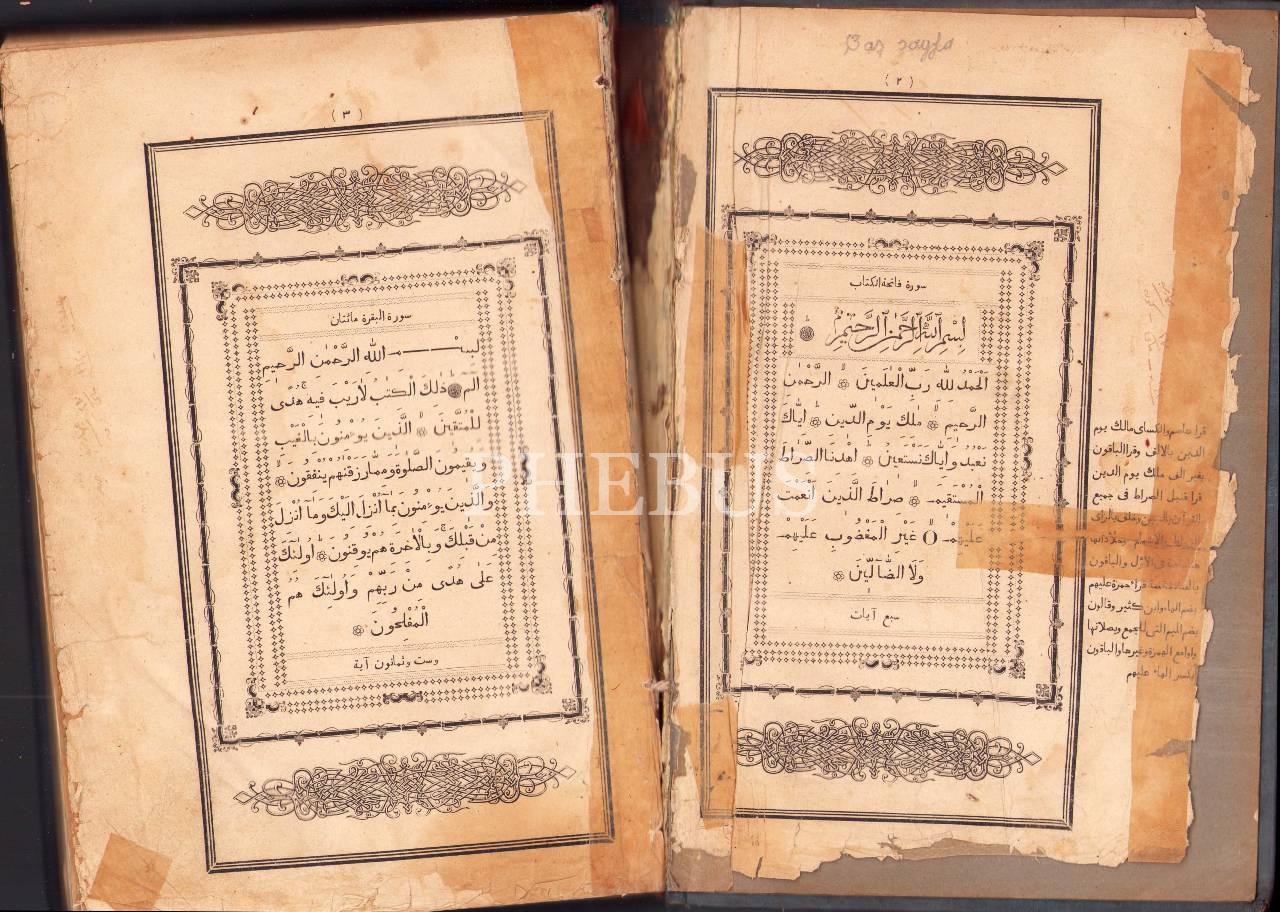 Baz zayfa
(٢)
سورة فاتحة الكتاب
بِسْمِ ٱللَّهِ ٱلرَّحْمٰنِ ٱلرَّحِيمِ
اَلْحَمْدُ لِلّٰهِ رَبِّ الْعٰلَمِينَ الرَّحْمٰنِ
الرَّحِيمِ مٰلِكِ يَوْمِ الدِّينِ اِيَّاكَ
نَعْبُدُ وَاِيَّاكَ نَسْتَعِينُ اِهْدِنَا الصِّرَاطَ
الْمُسْتَقِيمَ صِرَاطَ الَّذِينَ اَنْعَمْتَ
عَلَيْهِمْ غَيْرِ الْمَغْضُوبِ عَلَيْهِمْ
وَلَا الضَّالِّينَ
سبع آيات
قرا عاصم والكساى مالك يوم
الدين بالالف وقرا الباقون
بغير الف ملك يوم الدين
قرا قنبل الصراط فى جميع
القرآن بالسين وخلف بالزاى
والباقون
بالصاد قرا حمزة عليهم
بضم الهاء وابن كثير وقالون
بضم الميم التى للجمع ويصلانها
بواو مع الهمزة وغيرها والباقون
بكسر الهاء عليهم
(٣)
سورة البقرة مائتان
بسم الله الرَّحْمٰنِ الرَّحِيمِ
الٓمٓ ذٰلِكَ الْكِتٰبُ لَارَيْبَ فِيهِ هُدًى
لِلْمُتَّقِينَ الَّذِينَ يُؤْمِنُونَ بِالْغَيْبِ
وَيُقِيمُونَ الصَّلٰوةَ وَمِمَّا رَزَقْنٰهُمْ يُنْفِقُونَ
وَالَّذِينَ يُؤْمِنُونَ بِمَآ اُنْزِلَ اِلَيْكَ وَمَآ اُنْزِلَ
مِنْ قَبْلِكَ وَبِالْاٰخِرَةِ هُمْ يُوقِنُونَ اُولٰئِكَ
عَلٰى هُدًى مِنْ رَبِّهِمْ وَاُولٰئِكَ هُمُ
الْمُفْلِحُونَ
وست وثمانون آية
PHEBUS